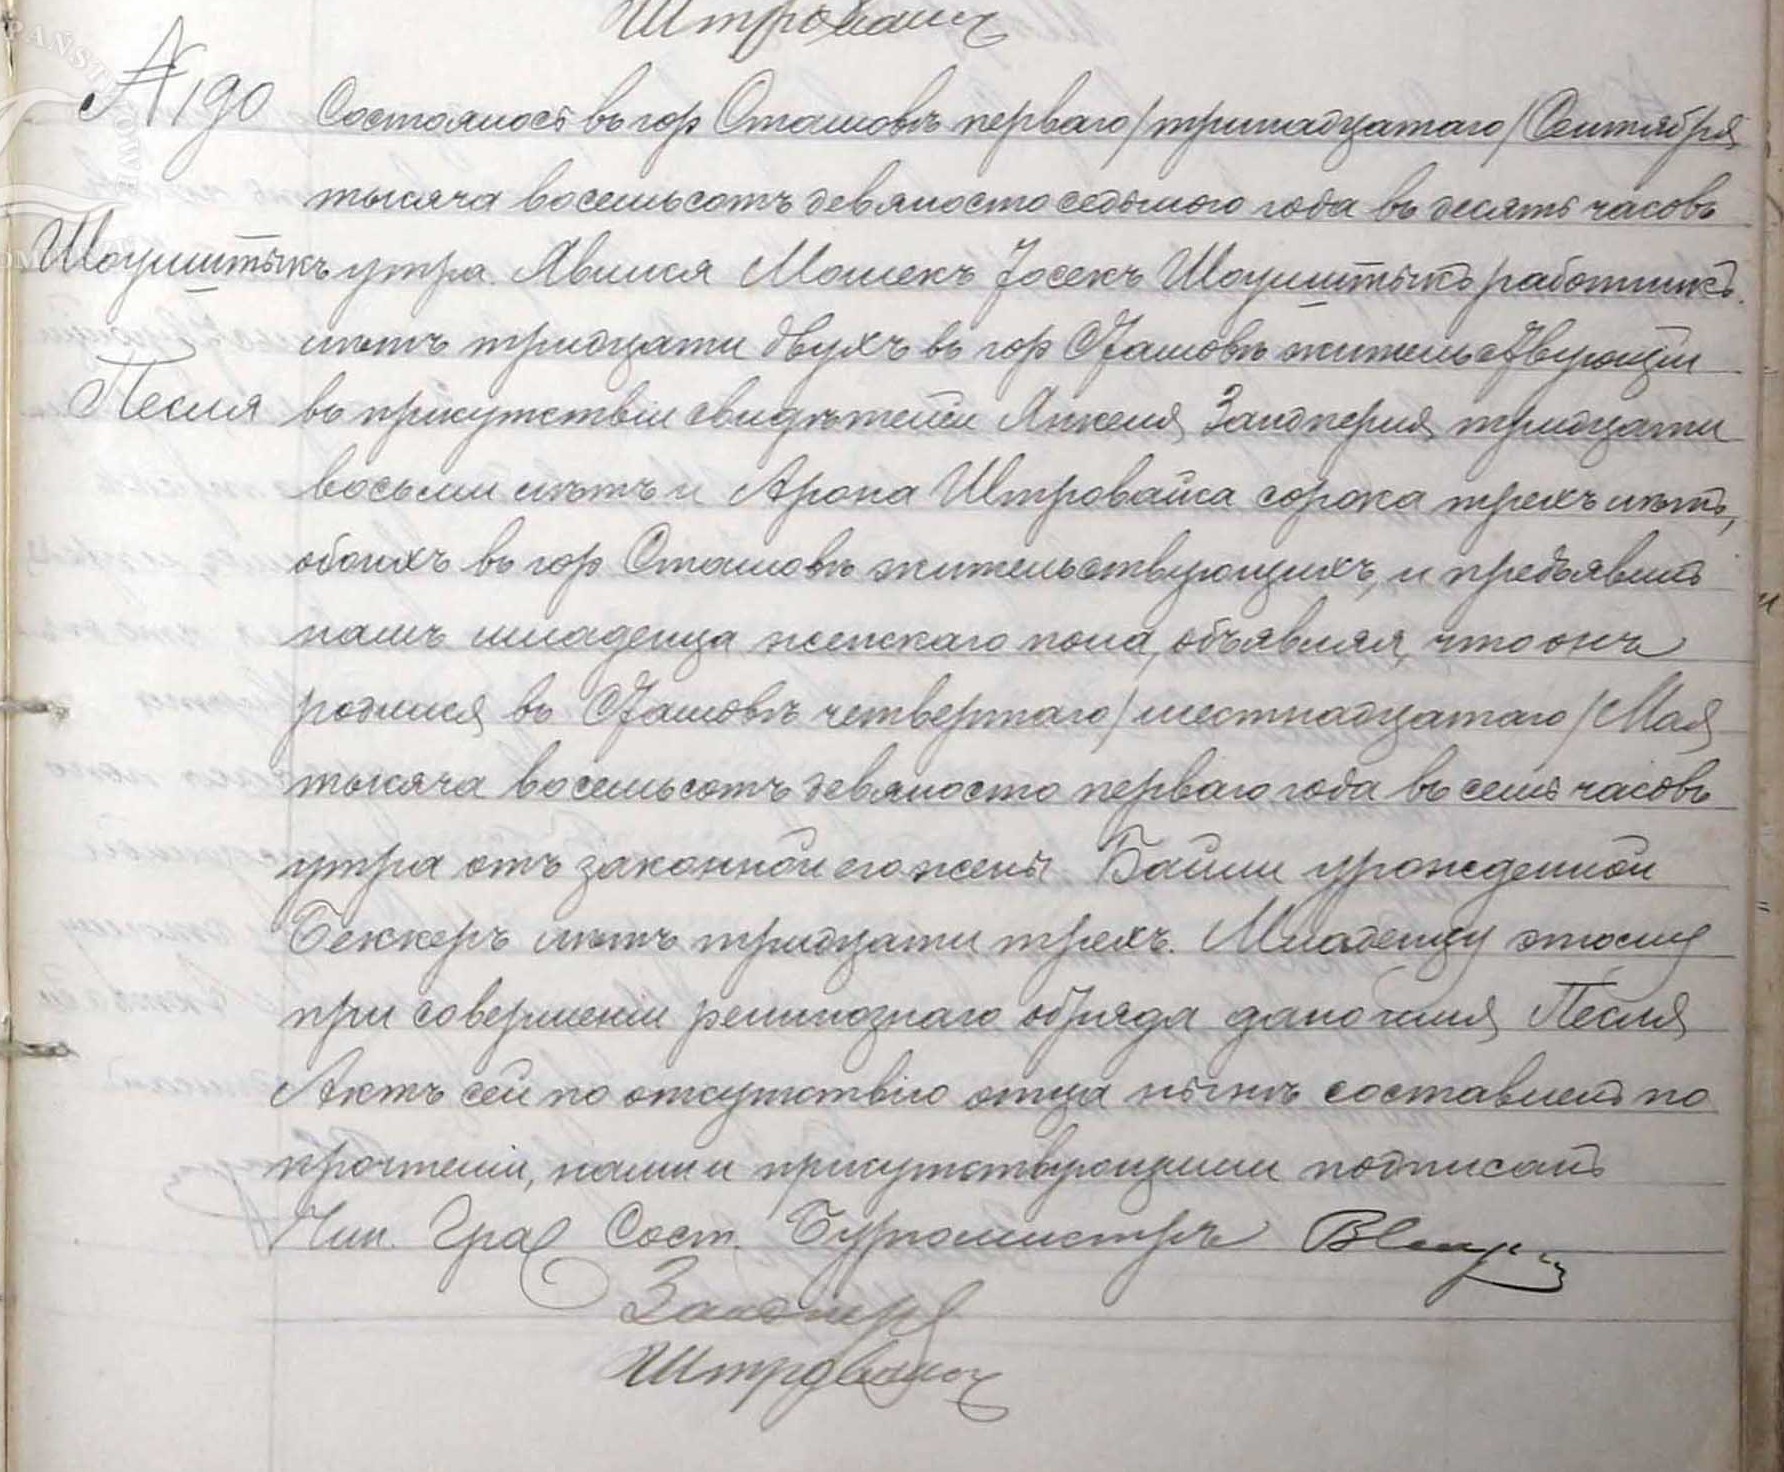 Штровайсъ
№ 190 Состоялось въ гор Сташовѣ перваго /тринадцатаго/ Сентября
тысяча восемьсотъ девяносто седьмого года въ десять часовъ
утра. Явился Мошекъ Іосекъ работникъ
лѣтъ тридцати двухъ въ гор Сташовѣ жительствующій
Песля въ присутствіи свидѣтелей Янкеля Зандперля тридцати
восьми лѣтъ и Арона Штровайса сорока трехъ лѣтъ,
обоихъ въ гор Сташовѣ жительствующихъ, и предъявилъ
намъ младенца женскаго пола, объявляя, что онъ
родился въ Сташовѣ четвертаго /шестнадцатаго/ Мая
тысяча восемьсотъ девяносто перваго года въ семь часовъ
утра отъ законной его жены Байли урожденной
Беккеръ лѣтъ тридцати трехъ. Младенцу этому
при совершеніи религіознаго обряда дано имя Песля
Актъ сей по отсутствію отца нынѣ составленъ по
прочтеніи, нами и присутствующими подписанъ
Чин. Граж Сост. Бургомистръ
Зандперл
Штровайсъ
PAŃSTWOWE